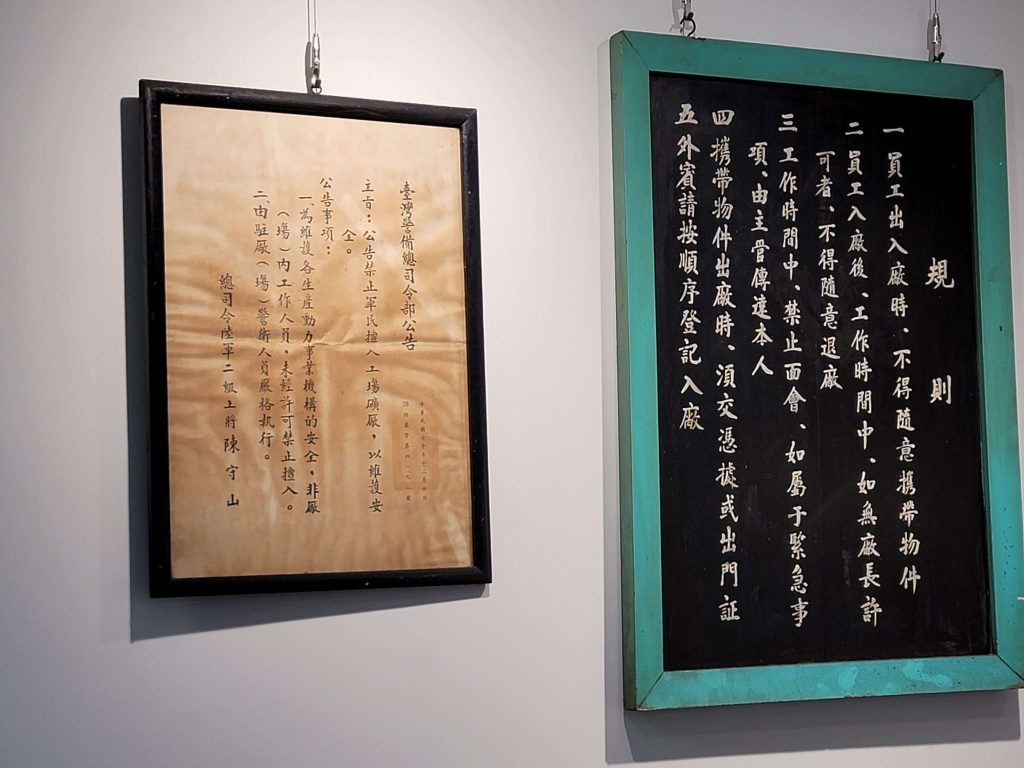 臺灣警備總司令部公告
主旨：公告禁止軍民擅入工場礦厰，以維護安
全。
公告事項：
一、為維護各生產動力事業機構的安全，非厰
（場）內工作人員，未經許可禁止擅入。
二、由駐厰（場）警衛人員嚴格執行。
總司令陸軍二級上將 陳守山
規則
一 員工出入廠時、不得隨意携帶物件
二 員工入廠後、工作時間中、如無廠長許
可者、不得隨意退廠
三 工作時間中、禁止面會、如屬于緊急事
項、由主管傳達本人
四 攜帶物件出廠時、須交憑據或出門証
五 外賓請按順序登記入廠